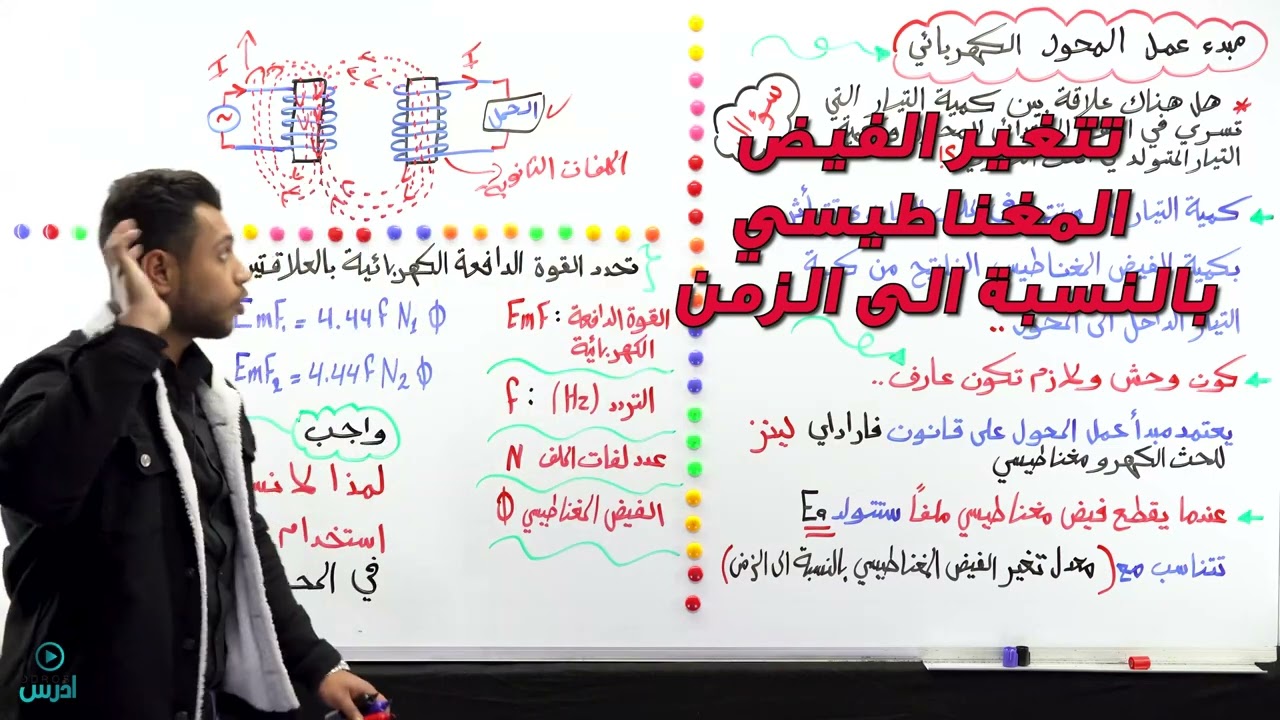 مبدء عمل المحول الكهربائي
* هل هناك علاقة بين كمية التيار التي
تسري في
سؤال
التيار المتولد
تتغير الفيض
المغناطيسي
بالنسبة الى الزمن
كمية التيار
بكمية الفيض المغناطيسي الناتج من كمية
التيار الداخل الى المحول ..
كون وحش ولازم تكون عارف..
يعتمد مبدأ عمل المحول على قانون فاراداي لينز
للحث الكهرومغناطيسي
عندما يقطع فيض مغناطيسي ملفاً ستتولد Eq
تتناسب مع (معدل تغير الفيض المغناطيسي بالنسبة الى الزمن)
I
I
~
الحمل
الملفات الثانوية
تحدد القوة الدافعة الكهربائية بالعلاقتين
EmF₁ = 4.44 f N₁ Φ
EmF₂ = 4.44 f N₂ Φ
القوة الدافعة : EmF
الكهربائية
التردد (Hz) : f
عدد لفات الملف N
الفيض المغناطيسي Φ
واجب
لمذا لا
استخدام
في
ادرس